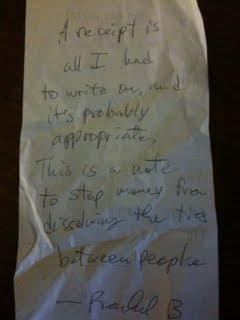 A receipt is
all I had
to write on, and
it's probably
appropriate.
This is a note
to stop money from
dissolving the ties
between people
— B